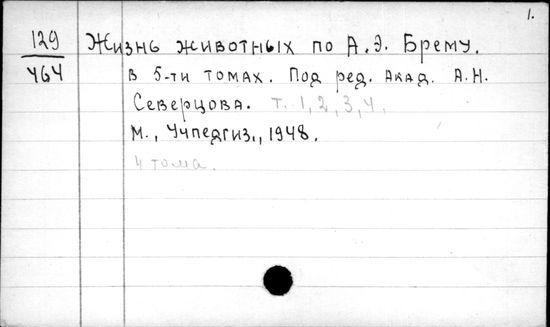 1.
129
464
Жизнь животных по А.Э. Брему.
в 5-ти томах. Под ред. Акад. А.Н.
Северцова. т. 1, 2, 3, 4.
М., Учпедгиз., 1948.
4 тома.